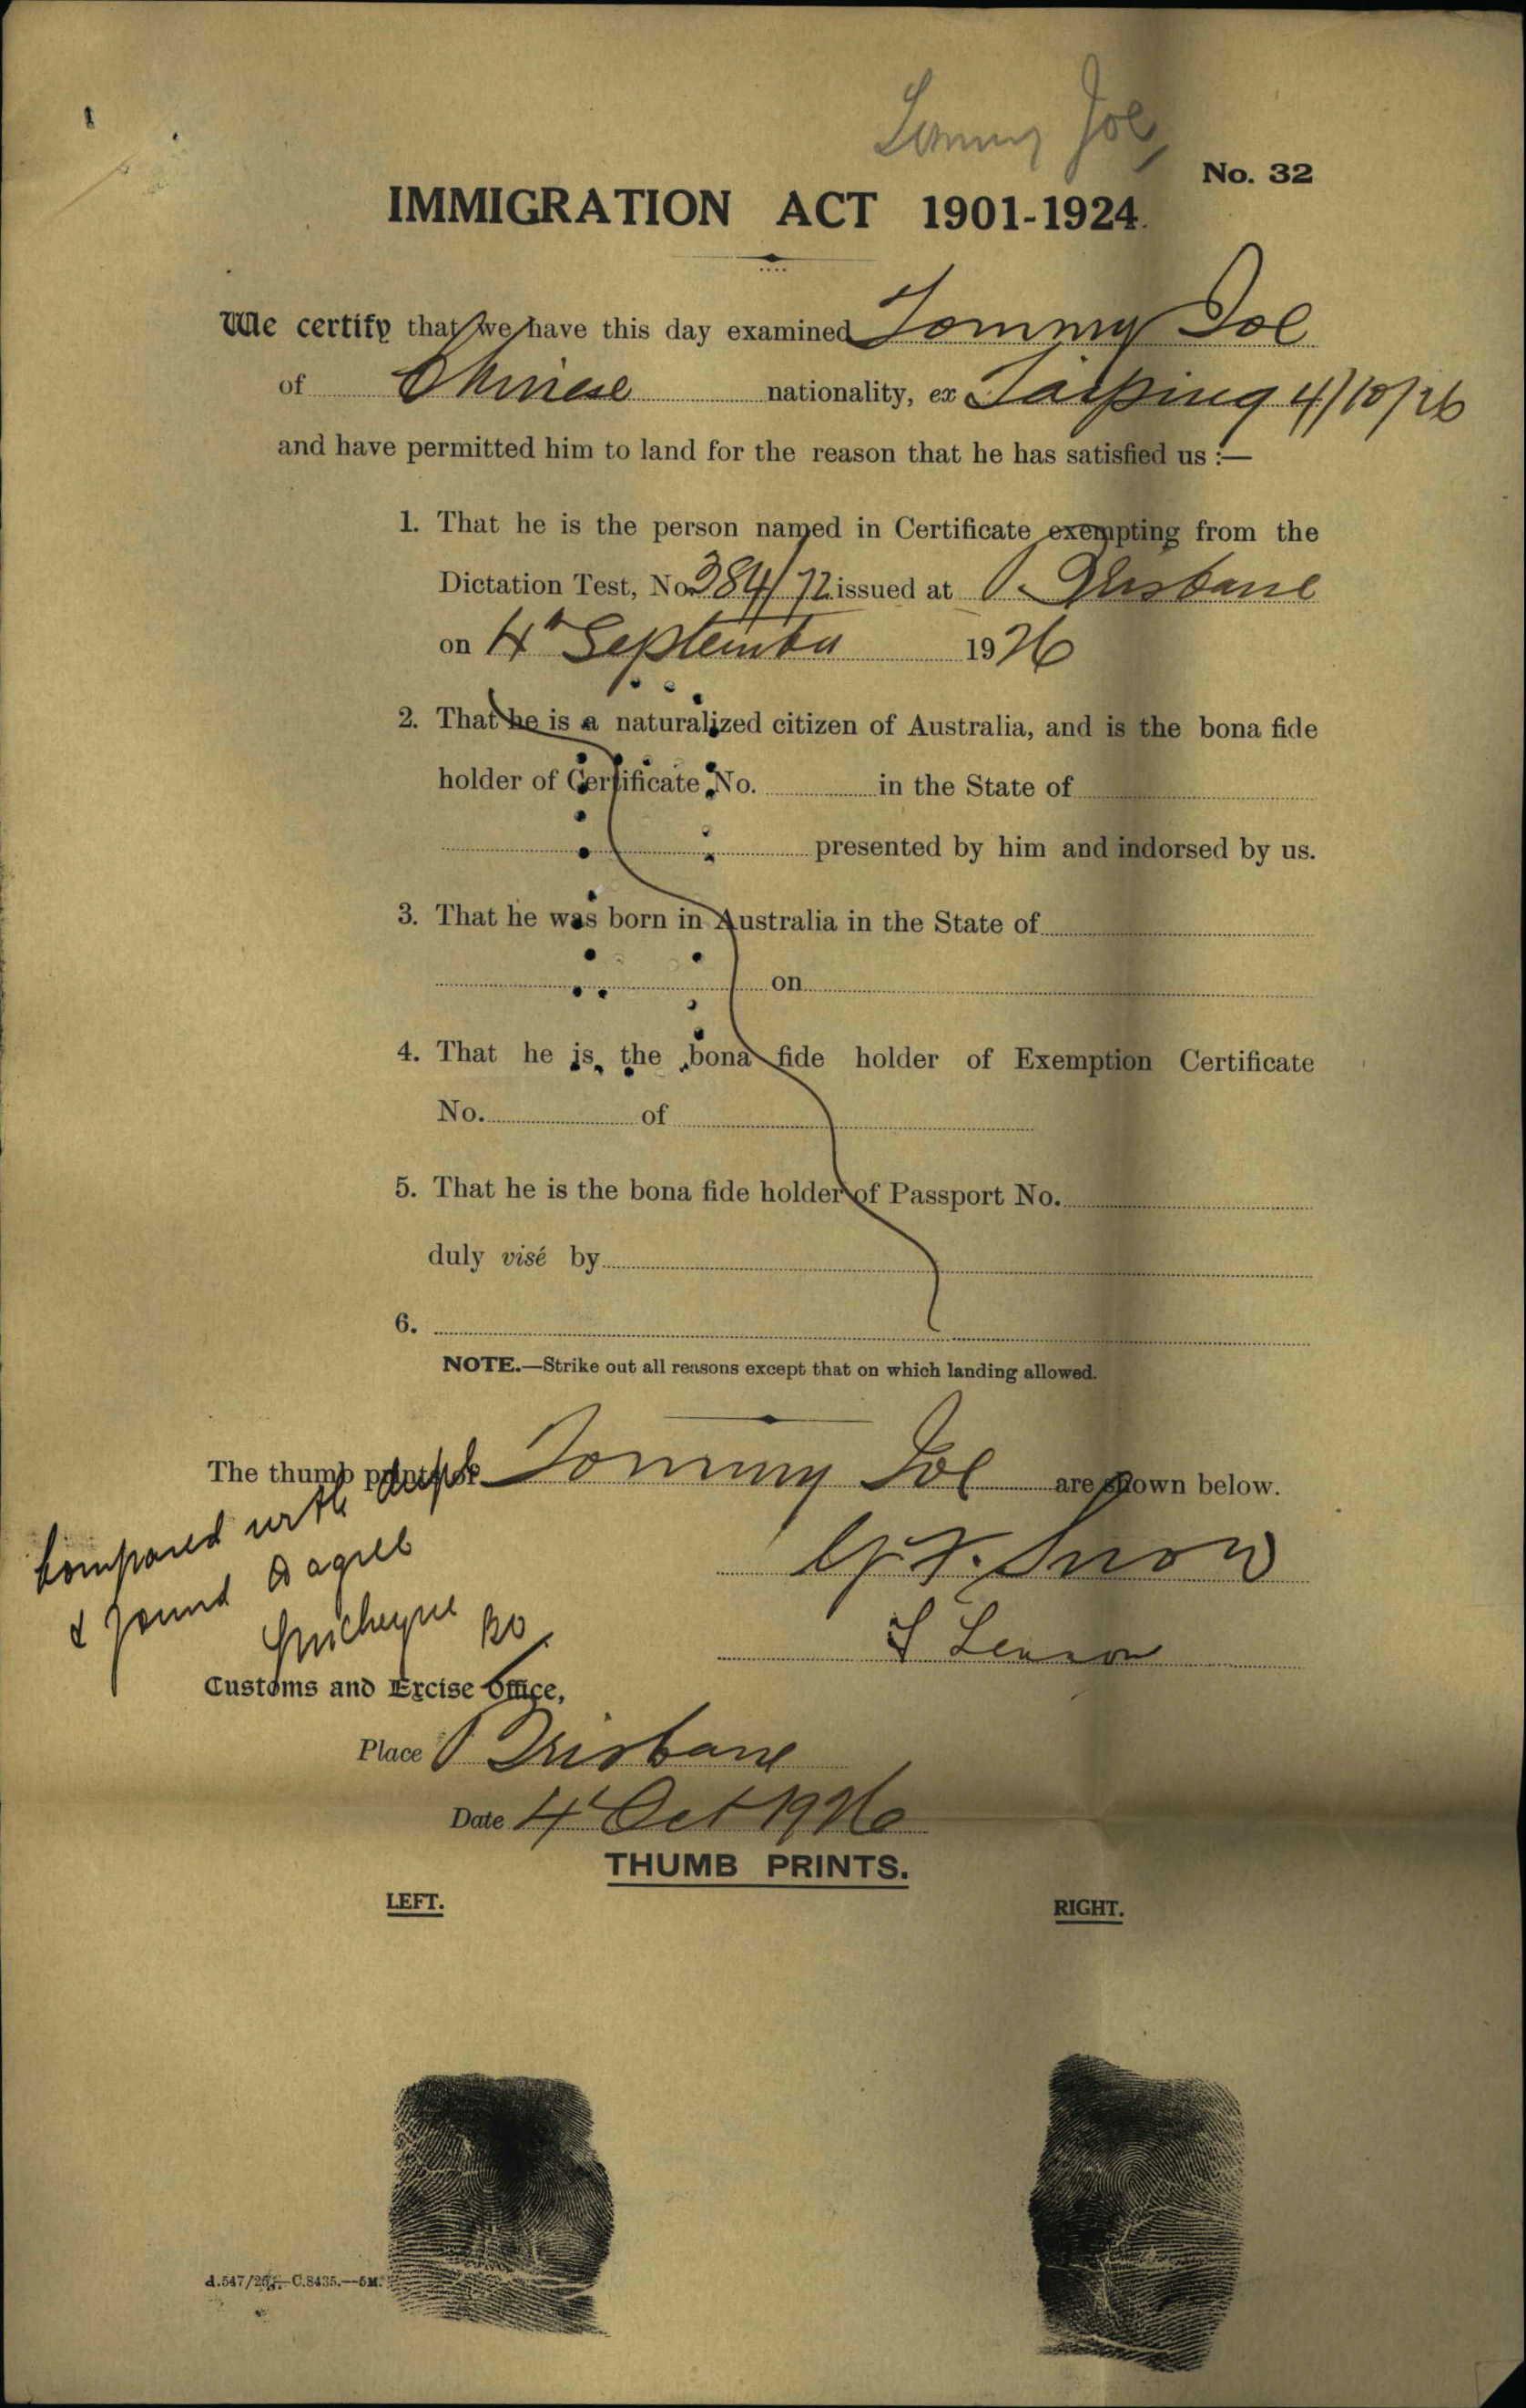 Tommy Joe
No. 32
IMMIGRATION ACT 1901-1924.
We certify that we have this day examined Tommy Joe
of Chinese nationality, ex Taiping 4/10/26
and have permitted him to land for the reason that he has satisfied us :—
1. That he is the person named in Certificate exempting from the
Dictation Test, No. 384/72 issued at Brisbane
on 4th September 1926
2. That he is a naturalized citizen of Australia, and is the bona fide
holder of Certificate No. in the State of
presented by him and indorsed by us.
3. That he was born in Australia in the State of
on
4. That he is the bona fide holder of Exemption Certificate
No. of
5. That he is the bona fide holder of Passport No.
duly visé by
6.
NOTE.—Strike out all reasons except that on which landing allowed.
The thumb prints of Tommy Joe are shown below.
Compared with
& found to agree
Snow
Customs and Excise Office,
Place Brisbane
Date 4 Oct 1926
THUMB PRINTS.
LEFT.
RIGHT.
C.8435.—5M.